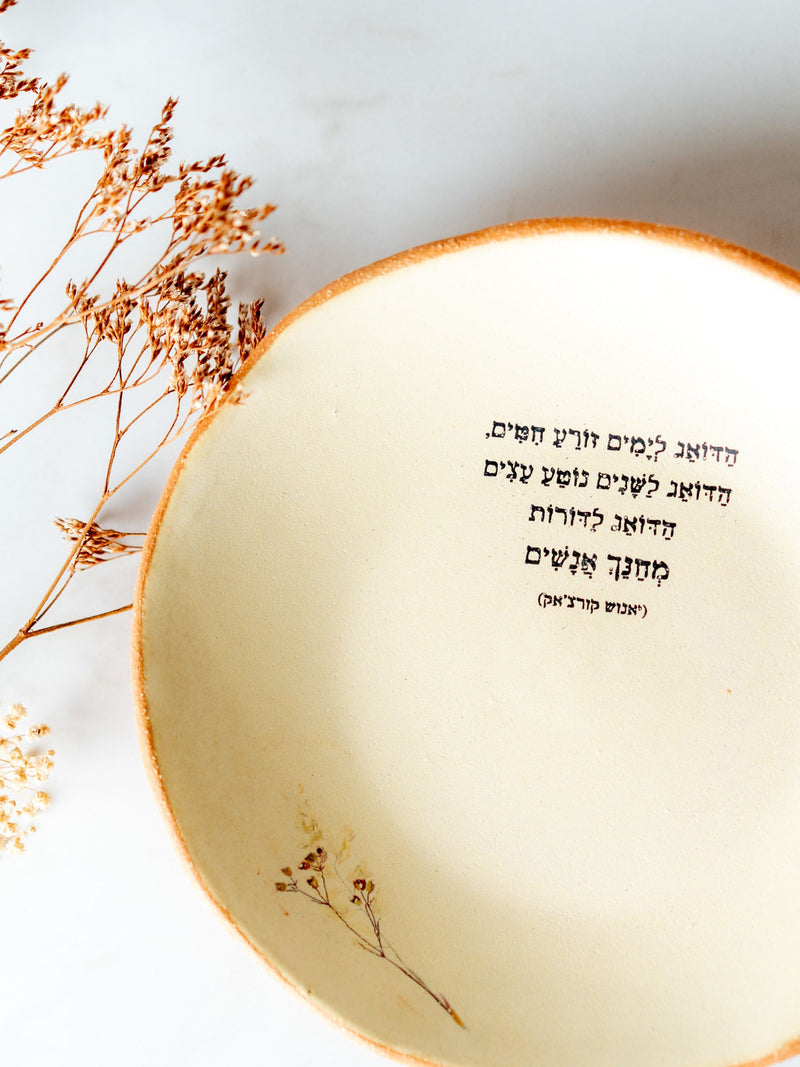 הַדּוֹאֵג לְיָמִים זוֹרֵעַ חִטִּים,
הַדּוֹאֵג לַשָּׁנִים נוֹטֵעַ עֵצִים
הַדּוֹאֵג לַדּוֹרוֹת
מְחַנֵּךְ אֲנָשִׁים
(יאנוש קורצ'אק)